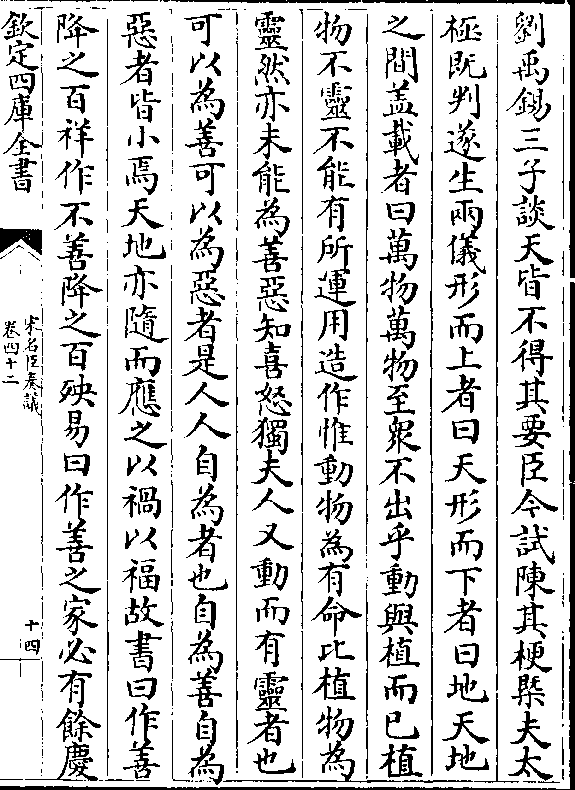 劉禹錫三子談天皆不得其要臣今試陳其梗槩夫太
極既判遂生兩儀形而上者曰天形而下者曰地天地
之間盖載者曰萬物萬物至衆不出乎動與植而已植
物不靈不能有所運用造作惟動物為有命比植物為
靈然亦未能為善惡知喜怒獨夫人又動而有靈者也
可以為善可以為惡者是人人自為者也自為善自為
惡者皆小焉天地亦隨而應之以禍以福故書曰作善
降之百祥作不善降之百殃易曰作善之家必有餘慶
欽定四庫全書
宋名臣奏議
卷四十二
十四